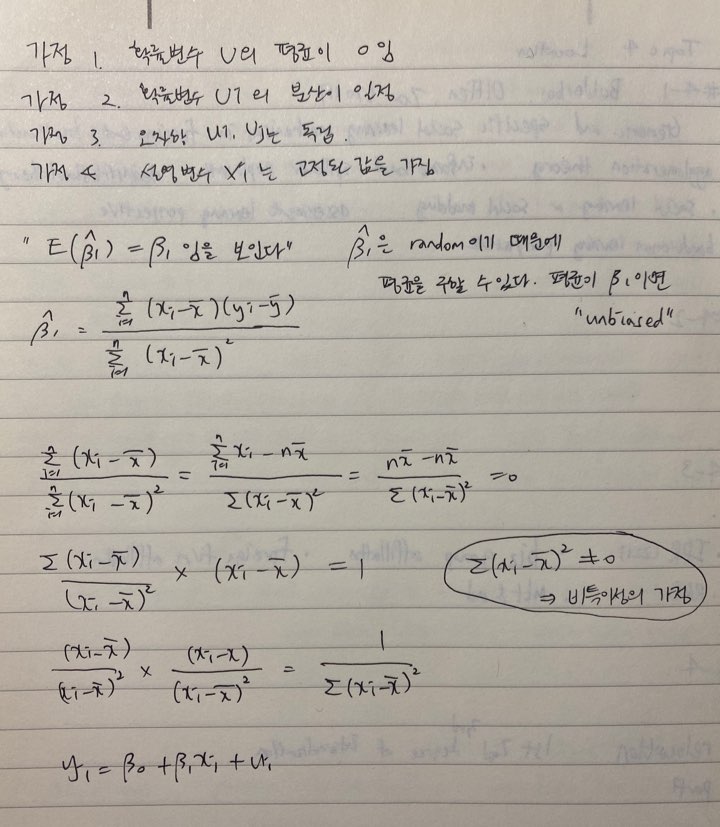 가정 1. 확률변수 U의 평균이 0임
가정 2. 확률변수 Ui의 분산이 일정
가정 3. 오차항 Ui, Uj는 독립.
가정 4 설명변수 Xi는 고정된 값을 가짐
" E(β̂₁) = β₁ 임을 보인다"
β̂₁은 random이기 때문에
평균을 구할 수 있다. 평균이 β₁이면
"unbiased"
β̂₁ = Σⁿᵢ₌₁ (xᵢ-x̄)(yᵢ-ȳ) / Σⁿᵢ₌₁ (xᵢ-x̄)²
Σⁿᵢ₌₁ (xᵢ-x̄) / Σⁿᵢ₌₁ (xᵢ-x̄)² = Σⁿᵢ₌₁ xᵢ - nx̄ / Σ(xᵢ-x̄)² = nx̄ - nx̄ / Σ(xᵢ-x̄)² = 0
Σ(xᵢ-x̄) / (xᵢ-x̄)² × (xᵢ-x̄) = 1
Σ(xᵢ-x̄)² ≠ 0
⇒ 비특이성의 가정
(xᵢ-x̄) / (xᵢ-x̄)² × (xᵢ-x) / (xᵢ-x̄)² = 1 / Σ(xᵢ-x̄)²
yᵢ = β₀ + β₁xᵢ + uᵢ